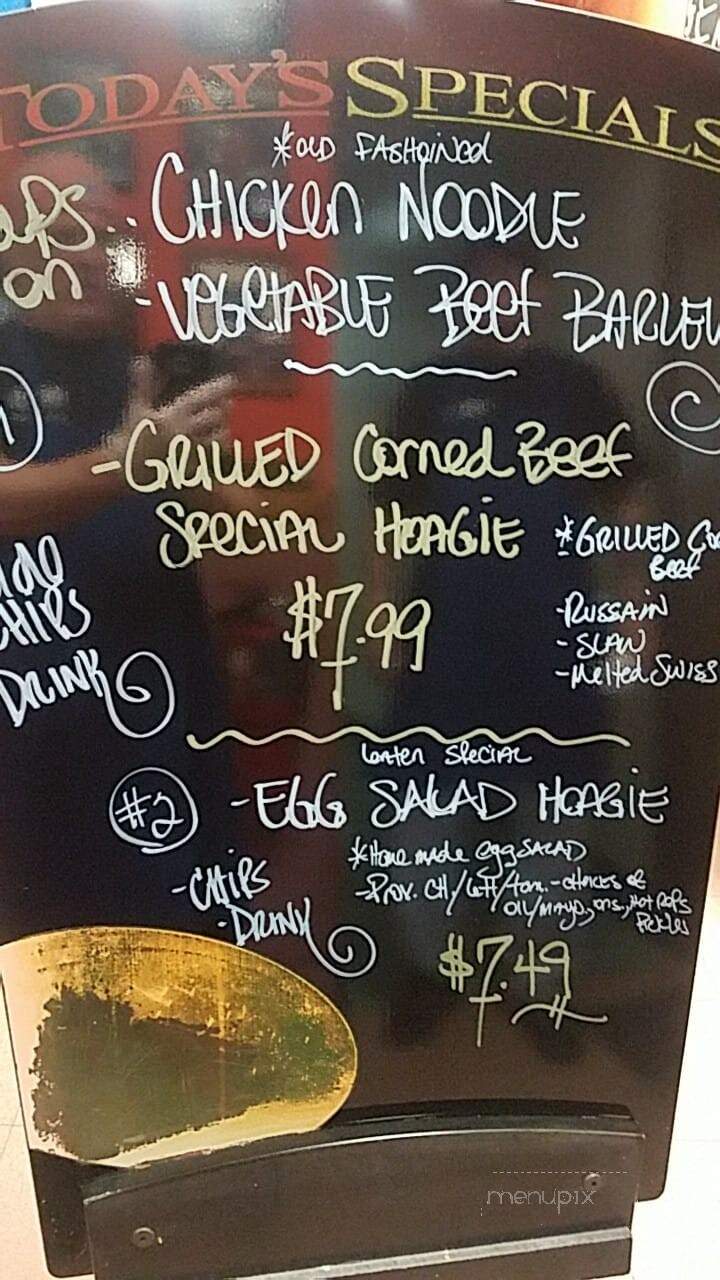 TODAY'S SPECIALS
*OLD FASHOINED
CHICKEN NOODLE
on
-VEGETABLE BEEF BARLEY
-GRILLED Corned Beef
SPECIAL HOAGIE
*GRILLED Co
Beef
CHIPS
DRINK
$7.99
-RUSSAIN
-SLAW
-Melted SWISS
Lenten Special
#2
-EGG SALAD HOAGIE
*Home made egg SALAD
-CHIPS
-DRINK
-Prov. CH/Lett/tom.-choices of
oil/mayo., ons., Hot Peps
Pickles
$7.49
menupix